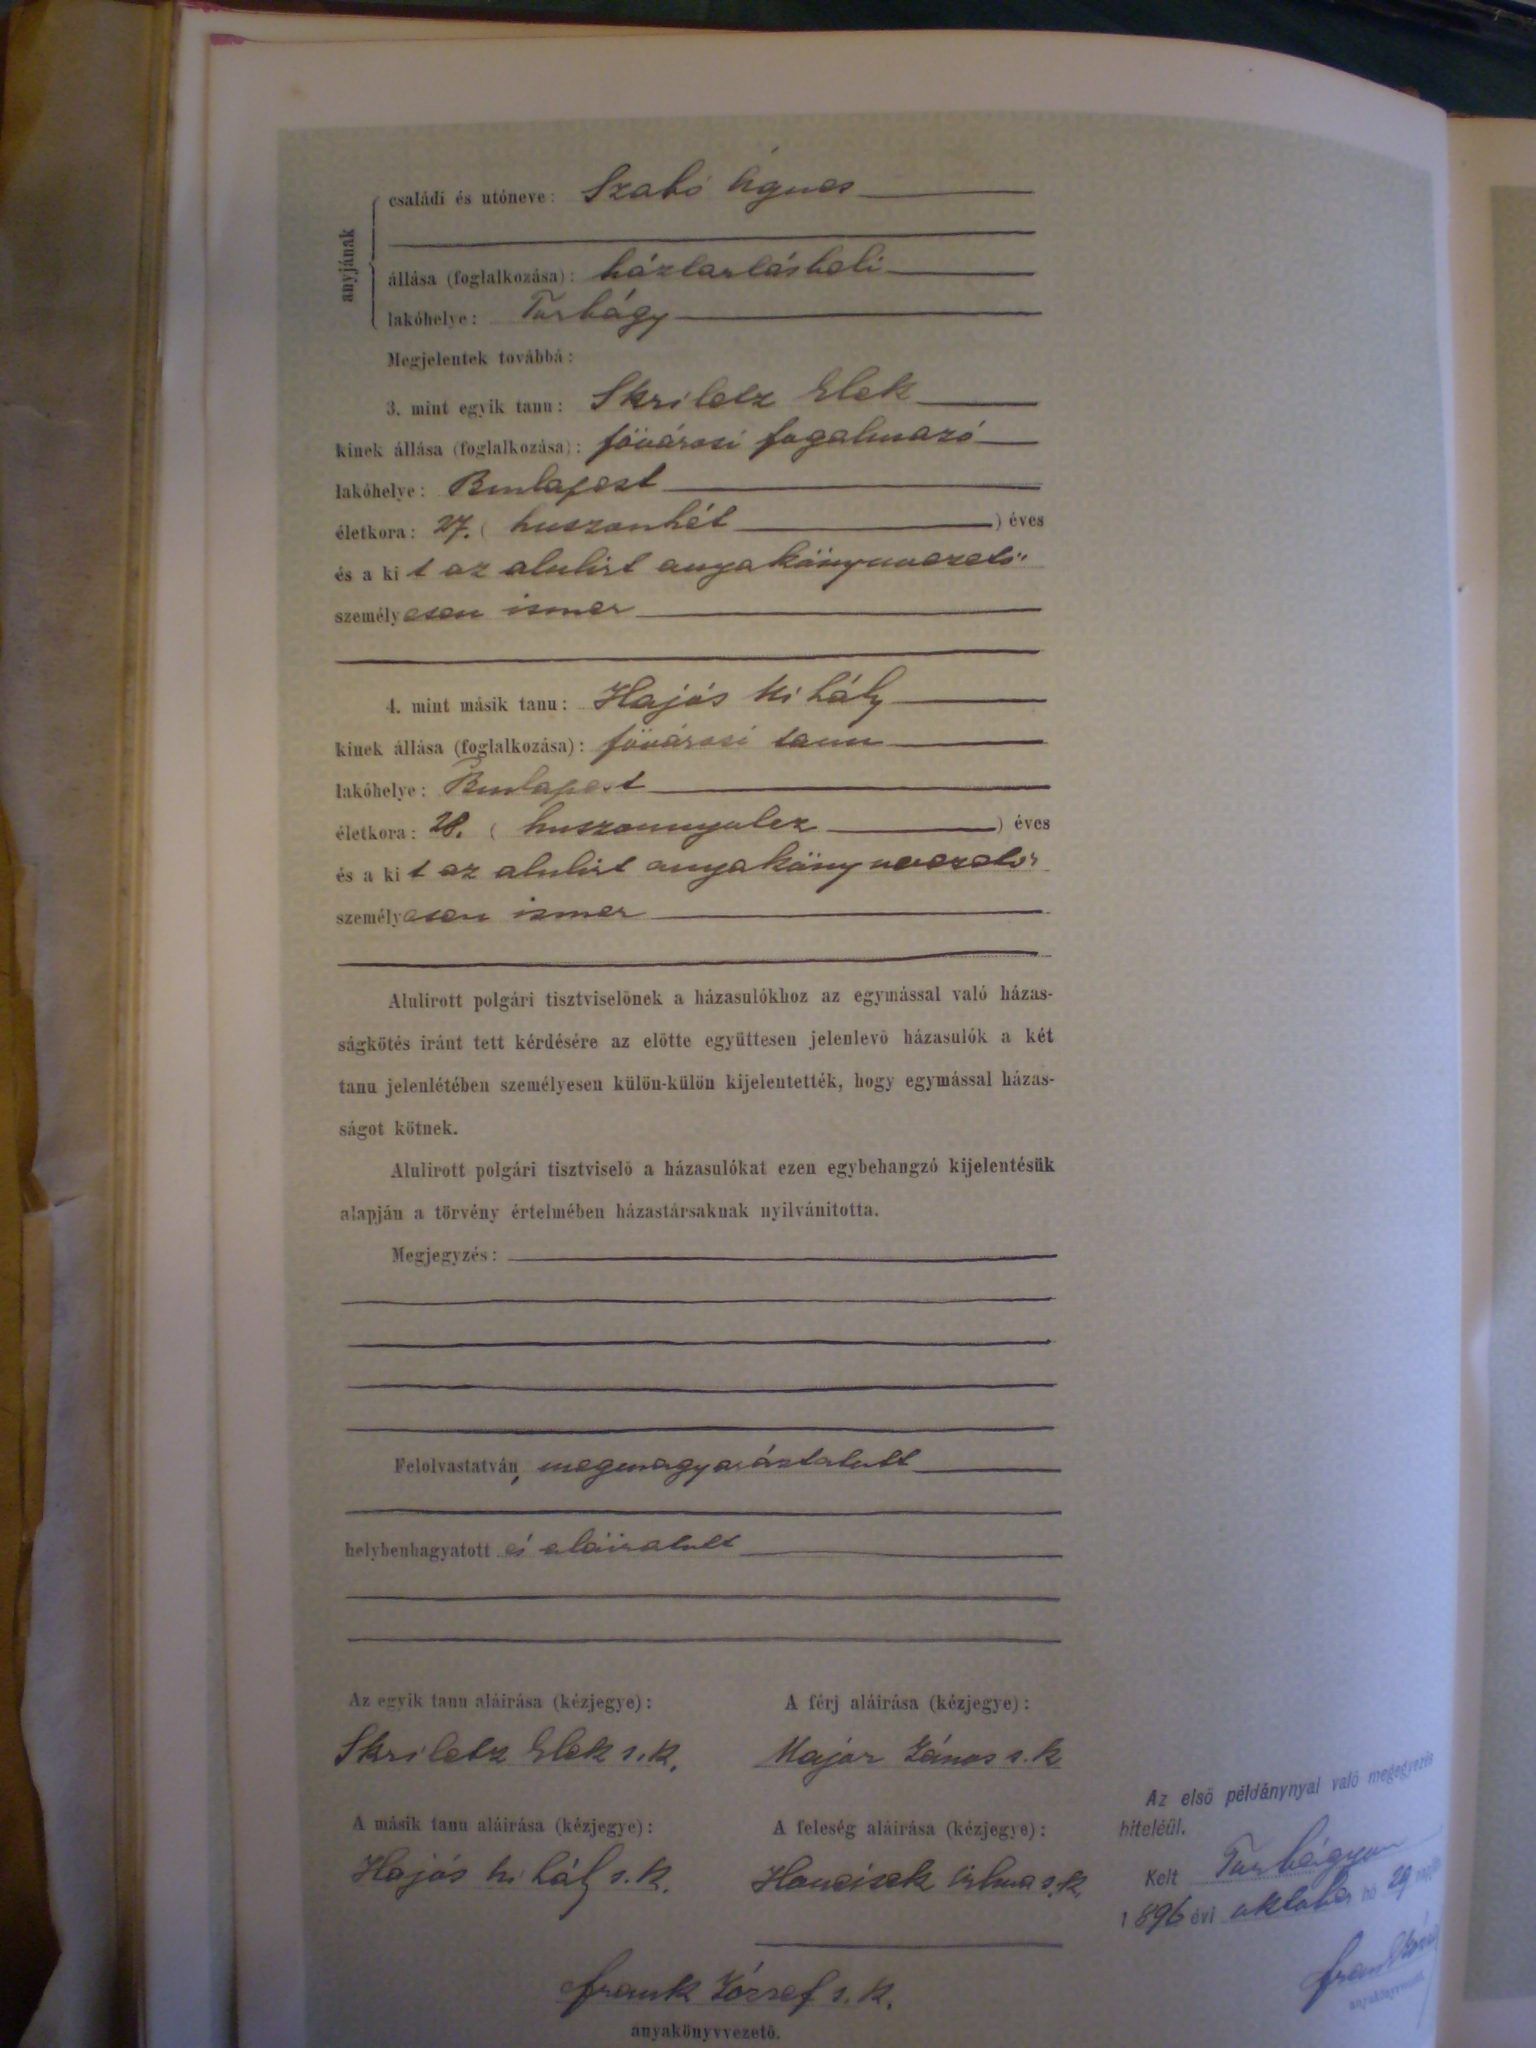 anyjának
családi és utóneve: Szabó Ágnes
állása (foglalkozása): háztartásbeli
lakóhelye: Torbágy
Megjelentek továbbá:
3. mint egyik tanu: Skriletz Elek
kinek állása (foglalkozása): fővárosi fogalmazó
lakóhelye: Budapest
életkora: 27. (huszonhét) éves
és a kit az alulirt anyakönyvvezető
személyesen ismer
4. mint másik tanu: Hajós Mihály
kinek állása (foglalkozása): fővárosi
lakóhelye: Budapest
életkora: 28. (huszonnyolcz) éves
és a kit az alulirt anyakönyvvezető
személyesen ismer
Alulirott polgári tisztviselőnek a házasulókhoz az egymással való házas-
ságkötés iránt tett kérdésére az előtte együttesen jelenlevő házasulók a két
tanu jelenlétében személyesen külön-külön kijelentették, hogy egymással házas-
ságot kötnek.
Alulirott polgári tisztviselő a házasulókat ezen egybehangzó kijelentésük
alapján a törvény értelmében házastársaknak nyilvánitotta.
Megjegyzés:
Felolvastatván, megmagyaráztatott
helybenhagyatott és aláiratott
Az egyik tanu aláirása (kézjegye): A férj aláirása (kézjegye):
Skriletz Elek s. k. Major János s. k
A másik tanu aláirása (kézjegye): A feleség aláirása (kézjegye):
Hajós Mihály s. k. s. k.
Frank József s. k.
anyakönyvvezető.
Az első példánynyal való megegyezés
hiteléül.
Kelt Torbágyon
1896 évi október hó 29
Frank József
anyakönyvvezető.